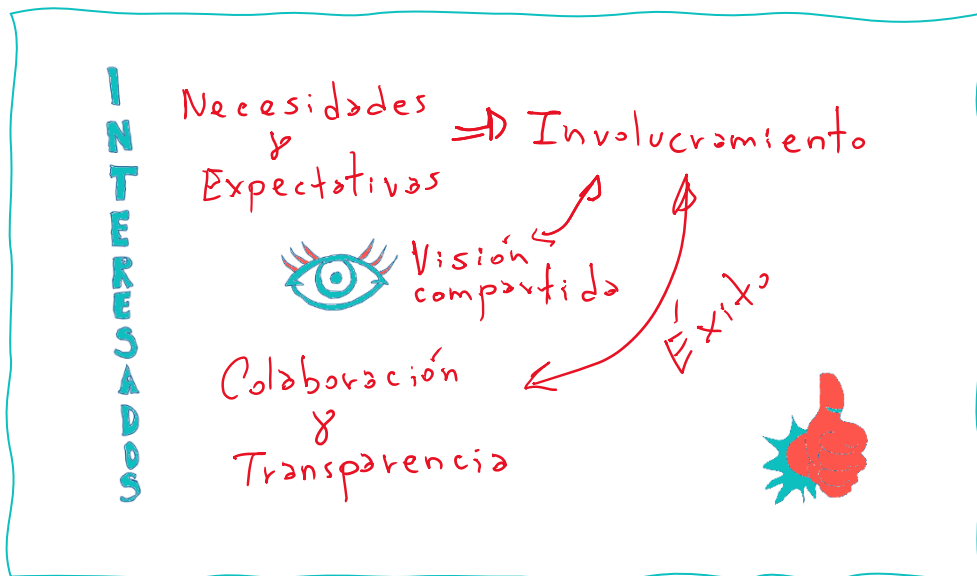 INTERESADOS
Necesidades
y
Expectativas
Involucramiento
Visión
compartida
Éxito
Colaboración
y
Transparencia